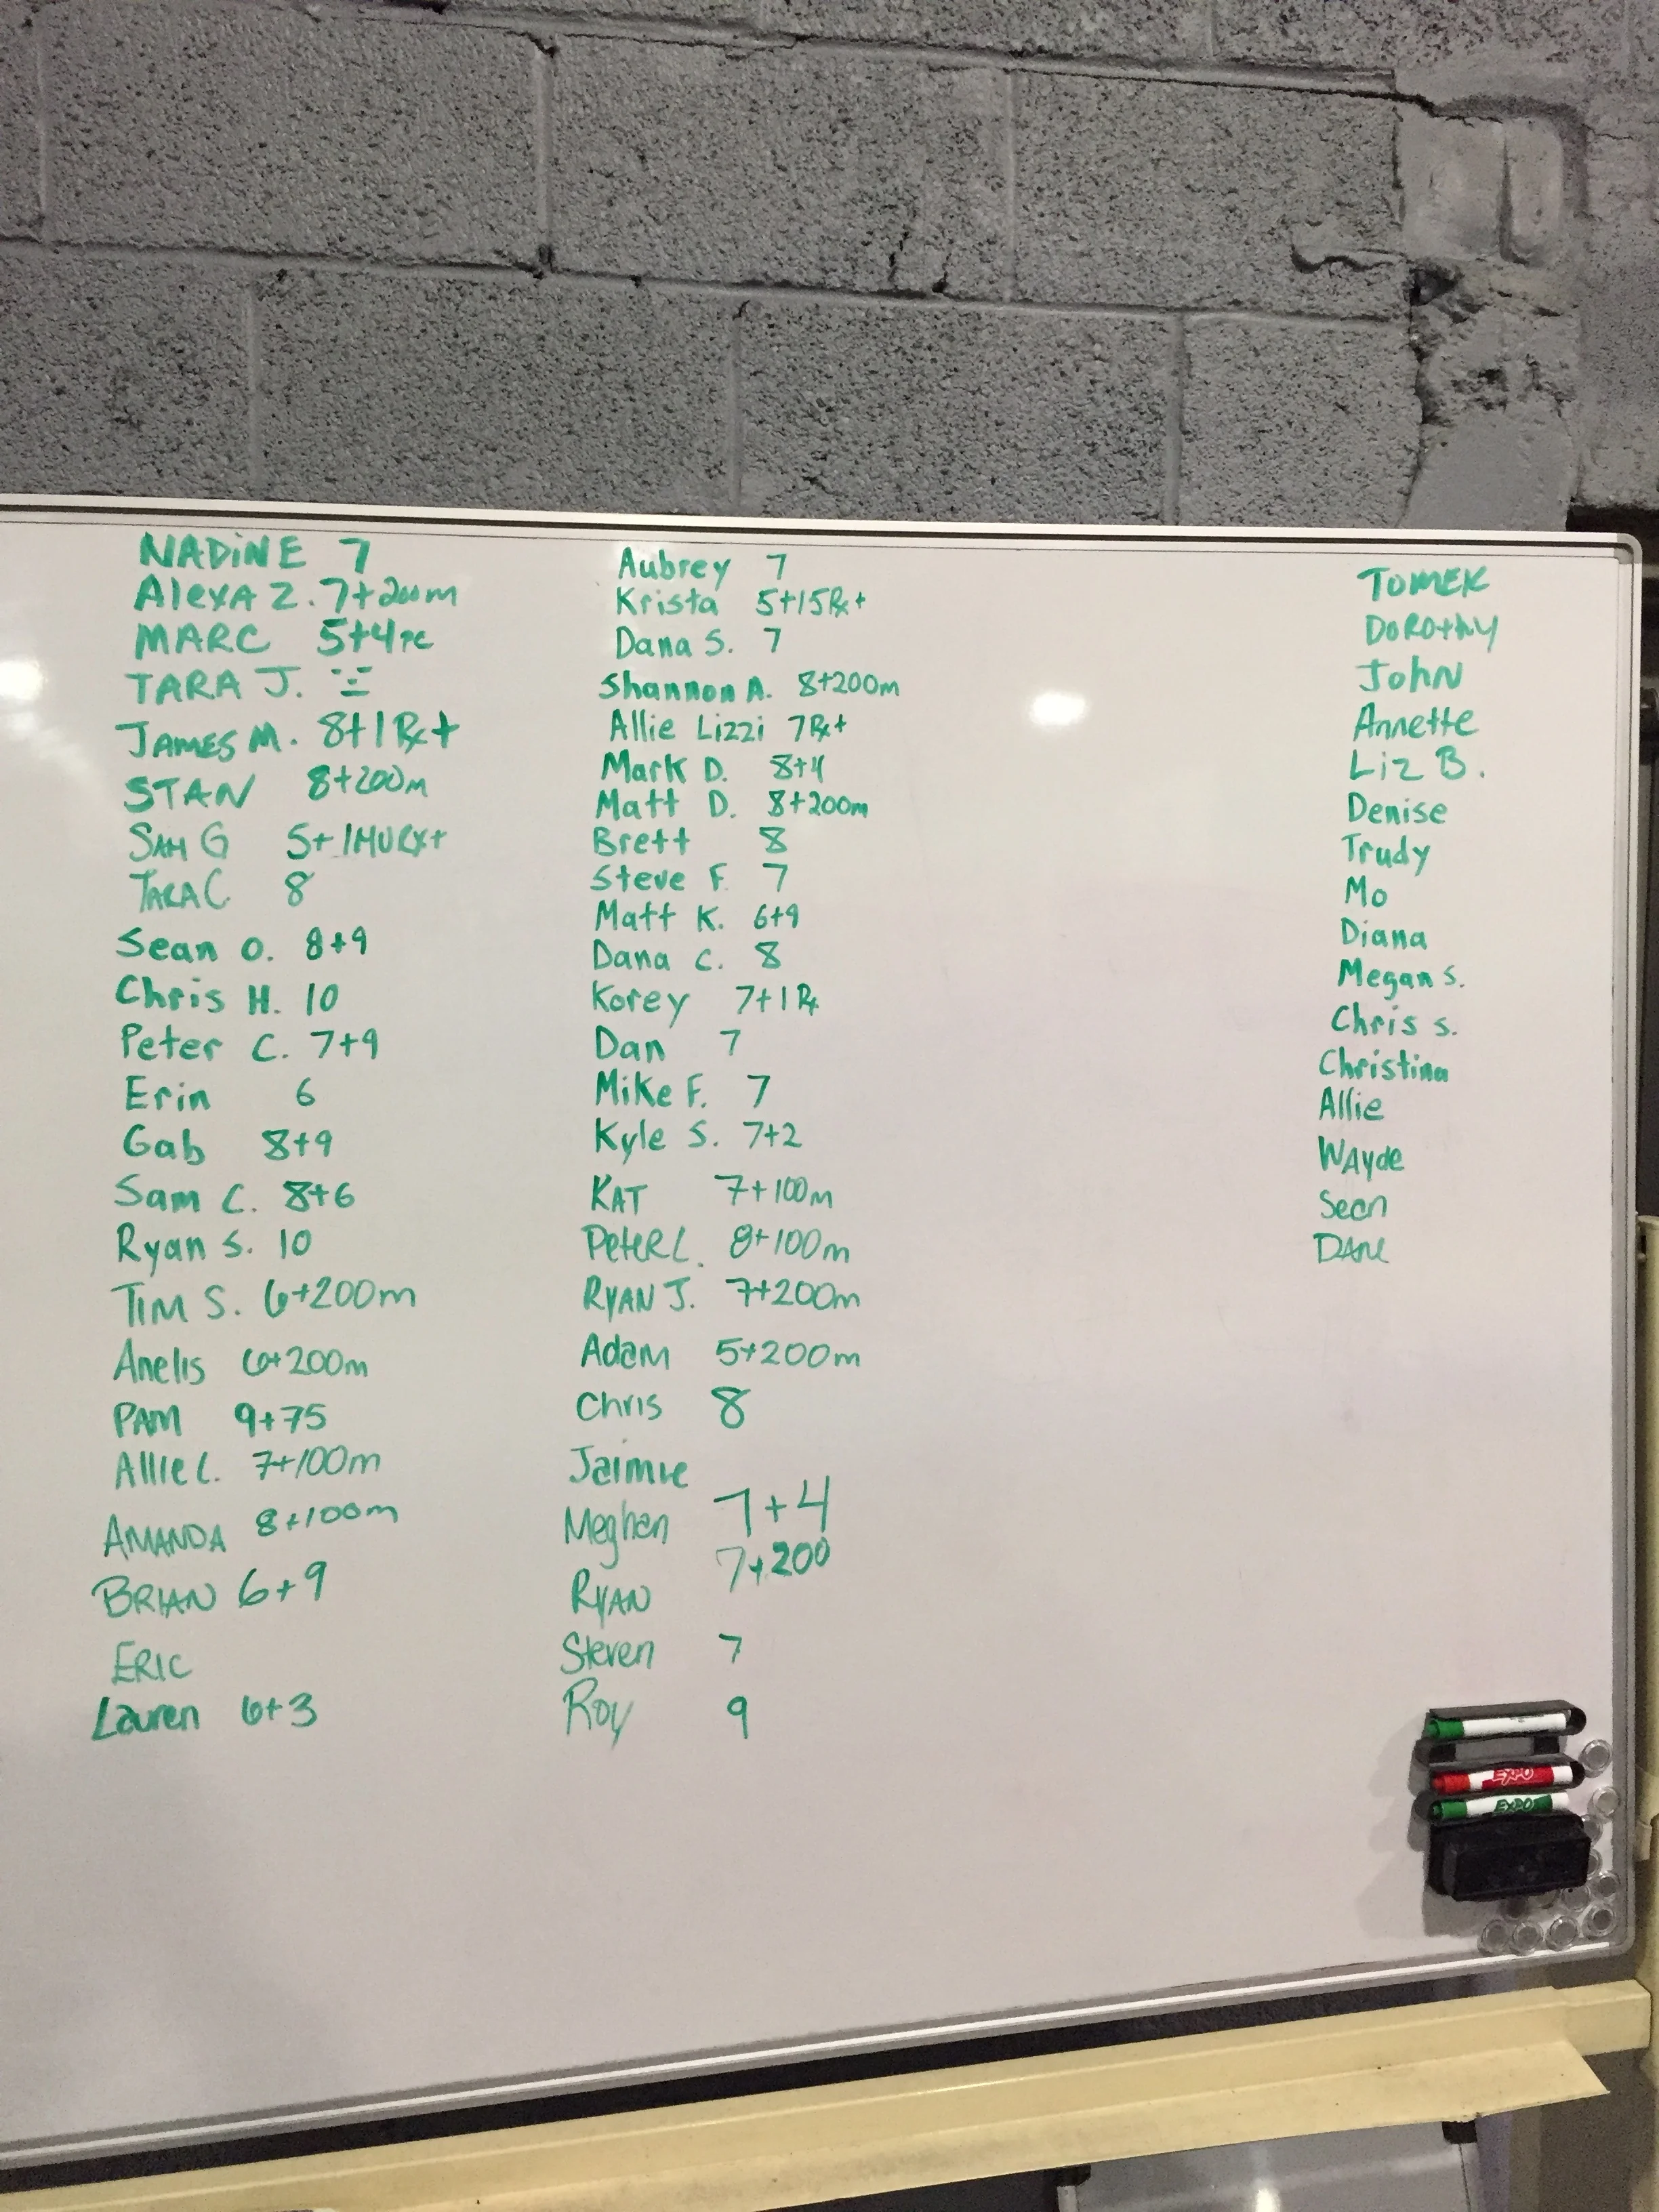 NADiNE 7
AlexA Z. 7+200m
MARC 5+4
TARA J.
JAMES M. 8+1 Rx+
STAN 8+200m
SAM G 5+1MU RX+
TARA C. 8
Sean O. 8+9
Chris H. 10
Peter C. 7+9
Erin 6
Gab 8+9
Sam C. 8+6
Ryan S. 10
TIM S. 6+200m
Anelis 6+200m
PAM 9+75
Allie L. 7+100m
AMANDA 8+100m
BRIAN 6+9
ERIC
Lauren 6+3
Aubrey 7
Krista 5+15Rx+
Dana S. 7
Shannon A. 8+200m
Allie Lizzi 7Rx+
Mark D. 8+4
Matt D. 8+200m
Brett 8
Steve F. 7
Matt K. 6+9
Dana C. 8
Korey 7+1 Rx
Dan 7
Mike F. 7
Kyle S. 7+2
KAT 7+100m
PeteR L. 8+100m
RYAN J. 7+200m
Adam 5+200m
Chris 8
Jaimie
Meghan 7+4
RYAN 7+200
Steven 7
Roy 9
TOMEK
DOROthY
JohN
Annette
Liz B.
Denise
Trudy
Mo
Diana
Megan S.
Chris S.
Christina
Allie
WAyde
Sean
EXPO
EXPO